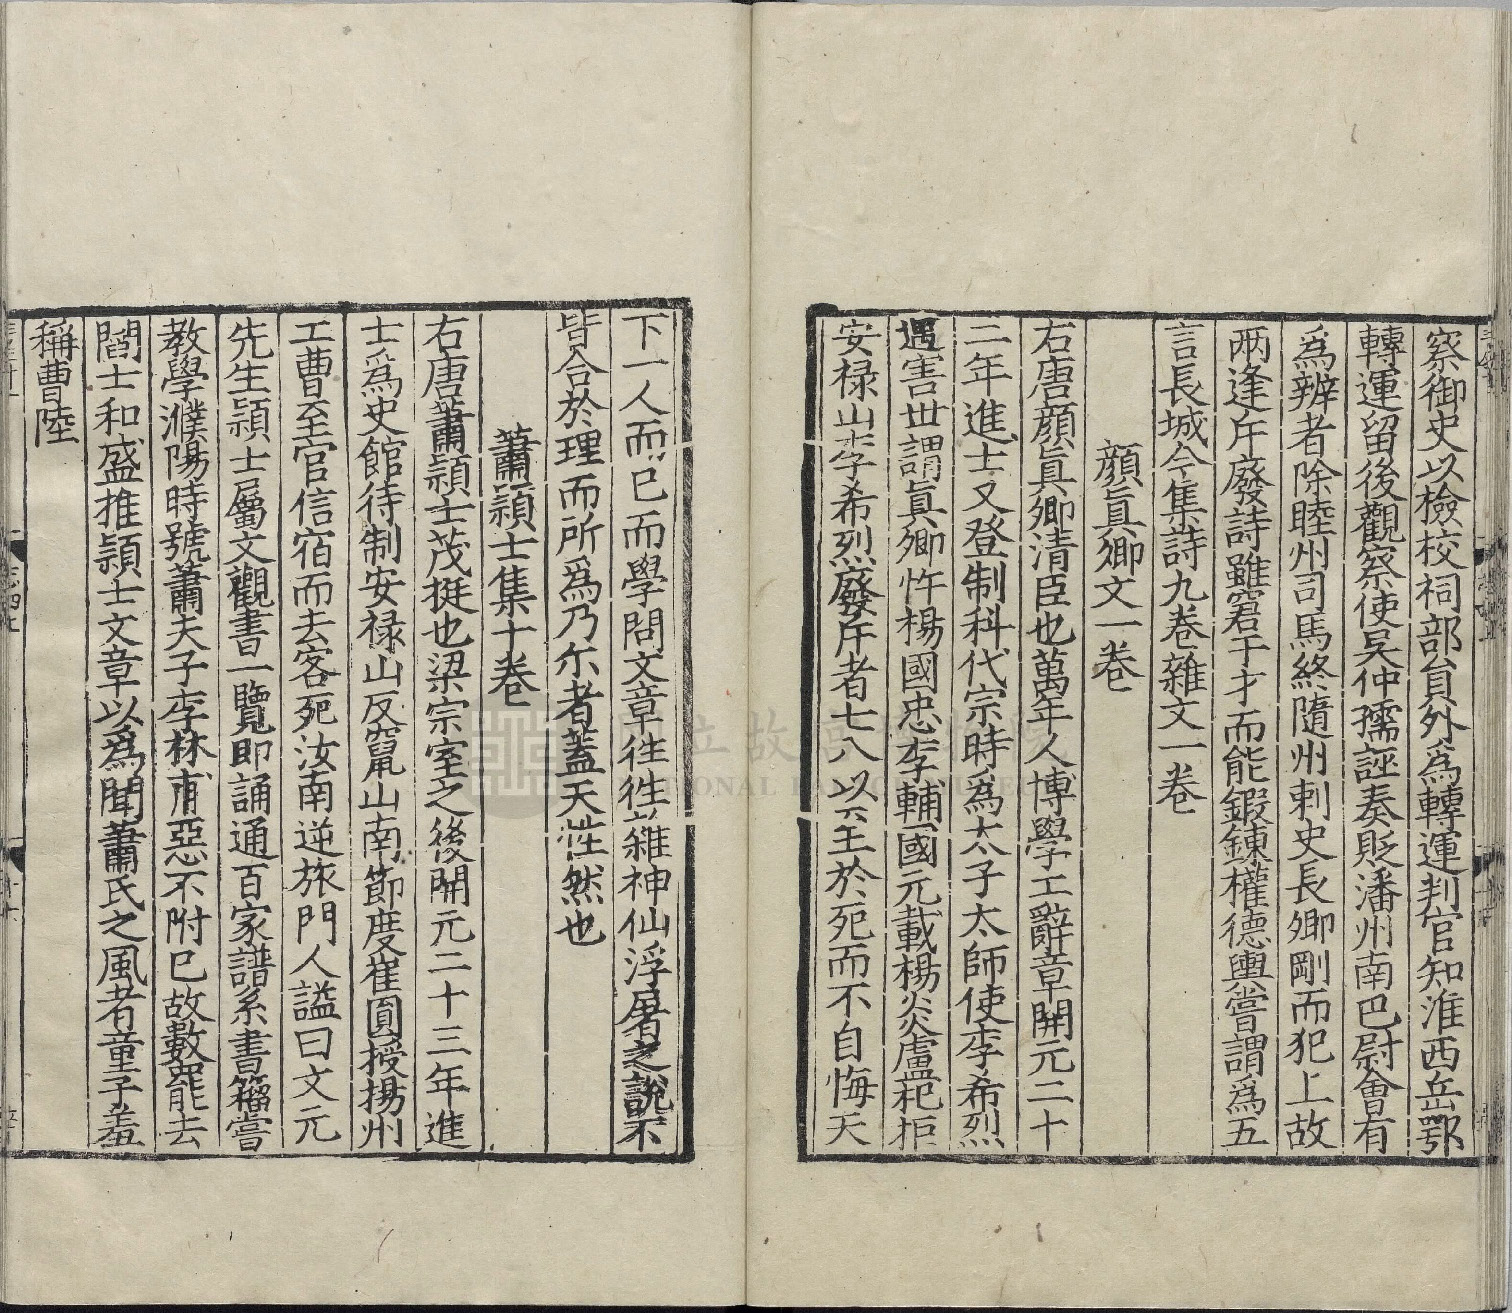 察御史以檢校祠部貟外爲轉運判官知淮西岳鄂
轉運留後觀察使吴仲孺誣奏貶潘州南巴尉會有
爲辨者除睦州司馬終隨州刺史長卿剛而犯上故
兩逢斥廢詩雖窘于才而能鍜鍊權德輿嘗謂爲五
言長城今集詩九卷雜文一卷
顔眞卿文一卷
右唐顔眞卿清臣也萬年人博學工辭章開元二十
二年進士又登制科代宗時爲太子太師使李希烈
遇害世謂眞卿忤楊國忠李輔國元載楊炎盧杞拒
安禄山李希烈廢斥者七八以至於死而不自悔天
下一人而已而學問文章徃徃雜神仙浮屠之說不
皆合於理而所爲乃尓者蓋天性然也
蕭頴士集十卷
右唐蕭頴士茂挺也梁宗室之後開元二十三年進
士爲史館待制安禄山反竄山南節度崔圎授揚州
工曹至官信宿而去客死汝南逆旅門人謚曰文元
先生頴士屬文觀書一覽即誦通百家譜系書籀嘗
教學濮陽時號蕭夫子李林甫惡不附已故數罷去
閻士和盛推頴士文章以爲聞蕭氏之風者童子羞
稱曹陸
國立故宮博物院
NATIONAL PALACE MUSEUM